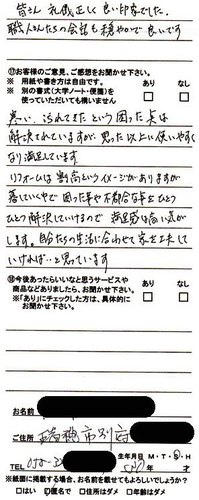 皆さん 礼儀正しく良い印象でした。
職人さんたちの会話も穏やかで良いです
⑰お客様のご意見、ご感想をお聞かせ下さい。
※ 用紙や書き方は自由です。
※ 別の書式(大学ノート・便箋)を
使っていただいても構いません
あり なし
寒い、汚れてきたという困った点は
解決されていますが、思った以上に使いやすく
なり満足しています
リフォームは 割高というイメージがありますが
暮していく中で 困った事や不都合な点をひとつ
ひとつ解決していけるので 満足感は高い気が
します。自分たちの生活に合わせて家を工夫して
いければ…と思っています
⑱今後あったらいいなと思うサービスや
商品などありましたら、お聞かせ下さい。
※「あり」にチェックした方は、具体的に
お聞かせ下さい。
あり なし
お名前
ご住所 市別府
生年月日 M・T・S・H
TEL 年 才
※紙面に掲載する場合、お名前を載せてもよろしいでしょうか?
はい 匿名で 住所はダメ 年齢はダメ